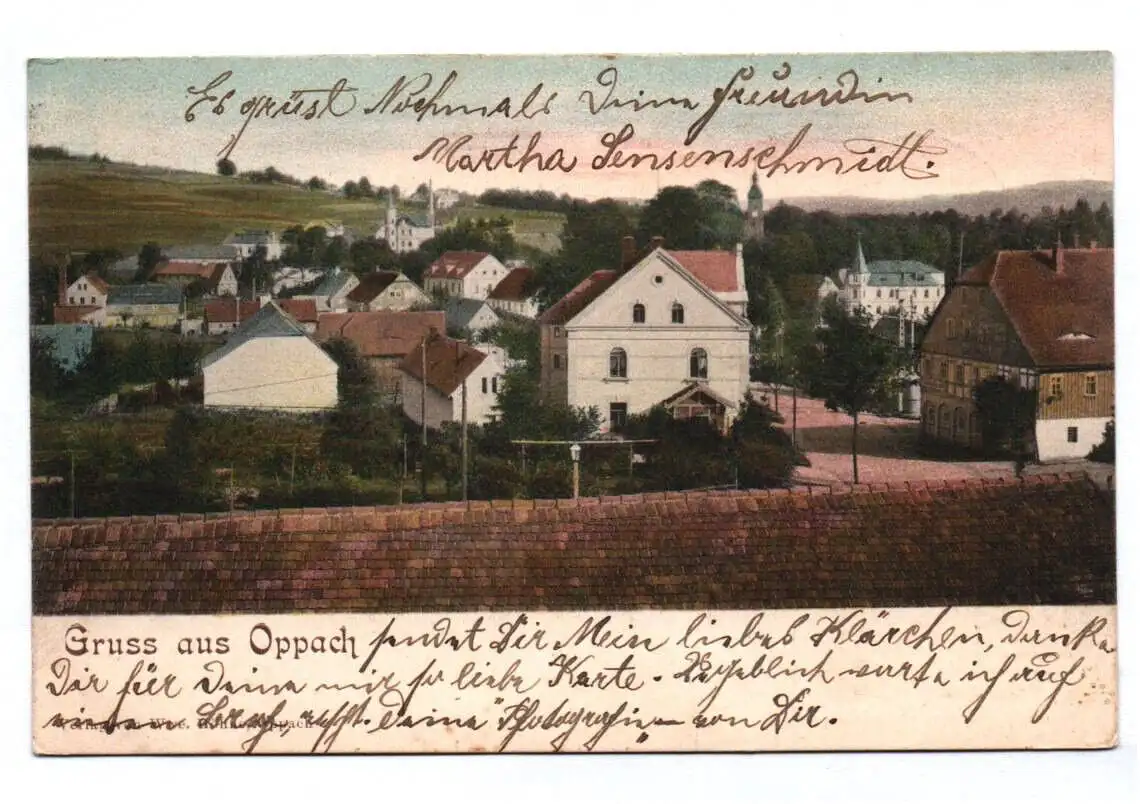 Es grüst Nochmals Deine freundin
Martha Sensenschmidt.
Gruss aus Oppach sendet Dir Mein liebes Klärchen, danke
Dir für Deine mir so liebe Karte. Vergeblich warte ich auf
Deine Photografie von Dir.
Verlag von Wwe. Oppach